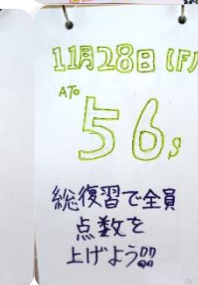 11月28日(F)
ATO
56s
総復習で全員
点数を
上げよう!!!!